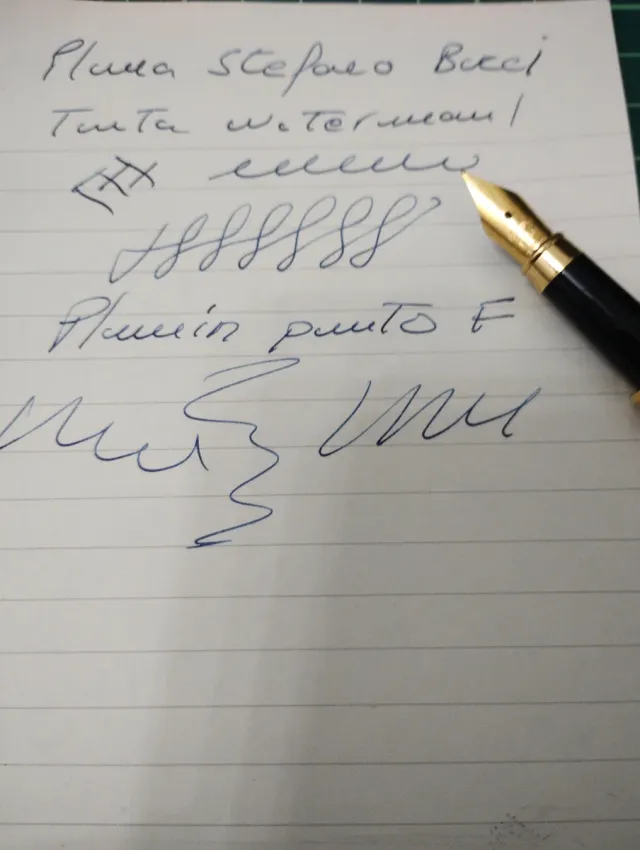 Pluma Stefano Bucci
Tinta Waterman
Plumín punto F